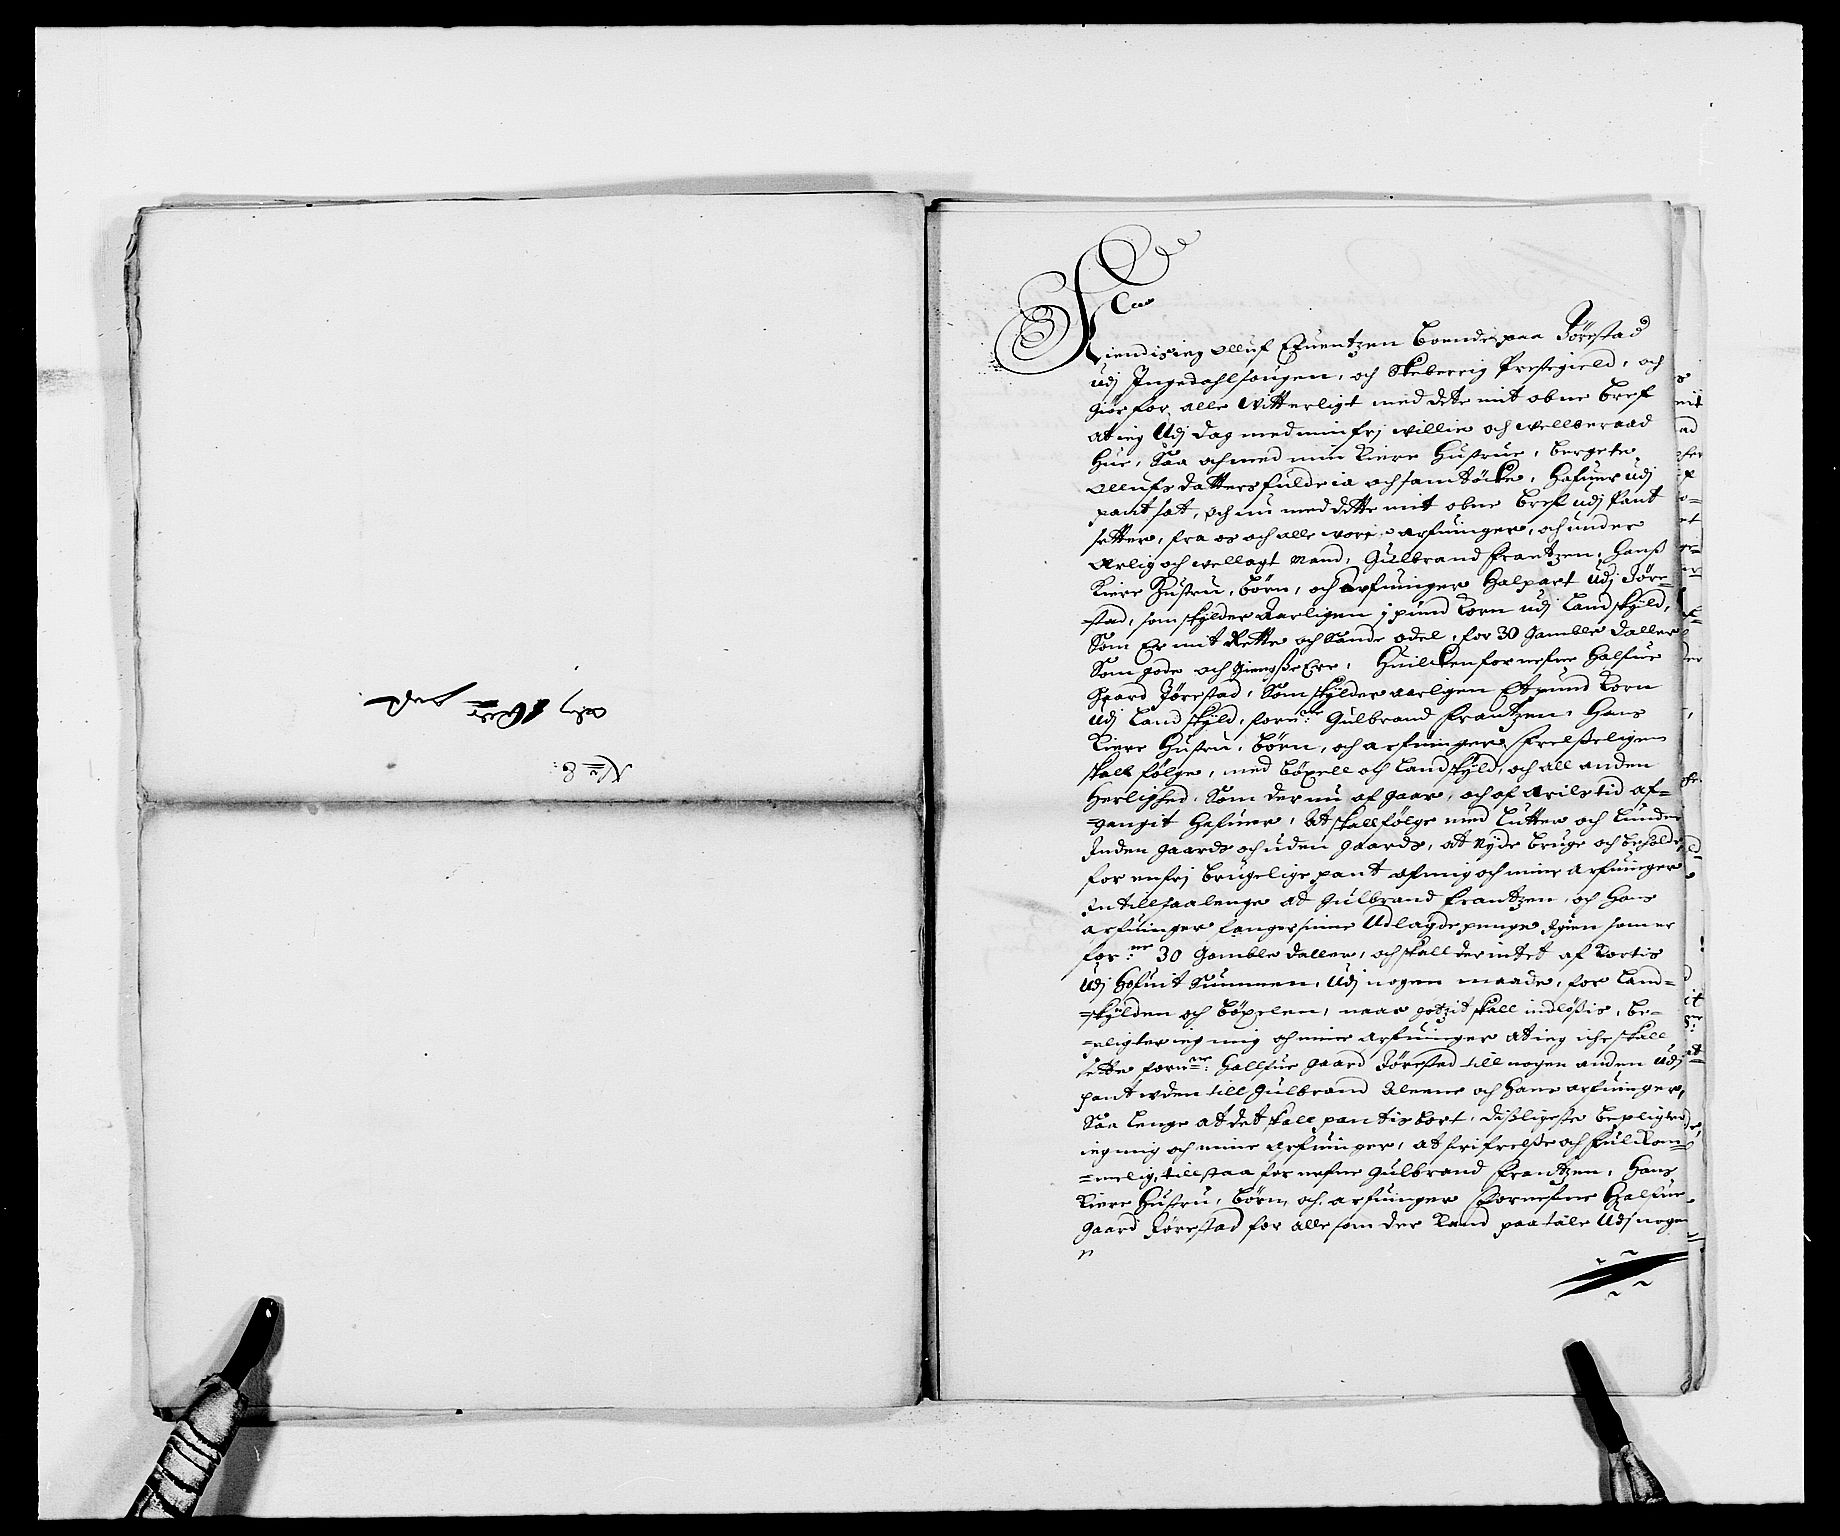 N:o 8:
Kiendis ieg Olluf Efuentzen Boende paa Jörestad
udj Ingedahlsougen, och Skebereig Prestegield, och
giör for alle Vitterligt med dete mit obne bref
at ieg Udj dag med min frj willie och wellberaad
Hue, Saa och med min Kiere Hustrue, bergete
Ollufs datters fulde ia och samtöcke, Hafuer udj
pant sat, och nu med dette mit obne bref udj Pant
setter, fra os och alle wore arfuinger, och under
Arlig och wellagt Mand, Gulbrand Frantzen, Hanß
Kiere Hustru, börn, och arfuinger Halpart Udj Jöre-
-stad, som skylder Aarligen j pund Korn udj Landskyld,
Som Er mit Rette och Sande odel, for 30 Gamble daller
Som gode och giengße Ere, Huilcken fornefne Halfue
Gaard Jörestad, Som skylder aarligen Et pund Korn
Udj Landskyld, forne: Gulbrand Frantzen, Hans
Kiere Hustru, börn, och arfuinger frelßeligen
skall fölge, med böxell och Landskyld, och all anden
Herlighed, Som der nu af gaar, och af Arilstid af-
=gangit Hafuer, At skall fölge med Lutter och Lunder
Inden gaards och uden gaards, at Nyde bruge och beholde
for en frj brugelige pant af mig och mine arfuinger
Intill saa lenge at Gulbrand Frantzen, och Hans
arfuinger fanger sine Udlagde penge Igien som er
for:ne 30 Gamble daller, och skall der intet af Kortis
Udj Hofuit Summen, Udj nogen maade, for Land=
=skylden och böxelen, naar gotzit skall indlößis, be=
=pligter ieg mig och mine arfuinger at ieg iche skall
sette forne: Hallfue gaard Jörestad till nogen anden Udj
pant uden till Gulbrand Alleene och Hans arfuinger,
Saa lenge at det skall pantis bort, dißligeste bepligter
ieg mig och mine arfuinger, at frj frelße och fulkom=
=melig, tillstaa fornefne Gulbrand Frantzen, Hans
Kiere Hustru, börn, och arfuinger fornefne Halfue
Gaard Jörestad for alle som der Kand paatale Udj noge
n